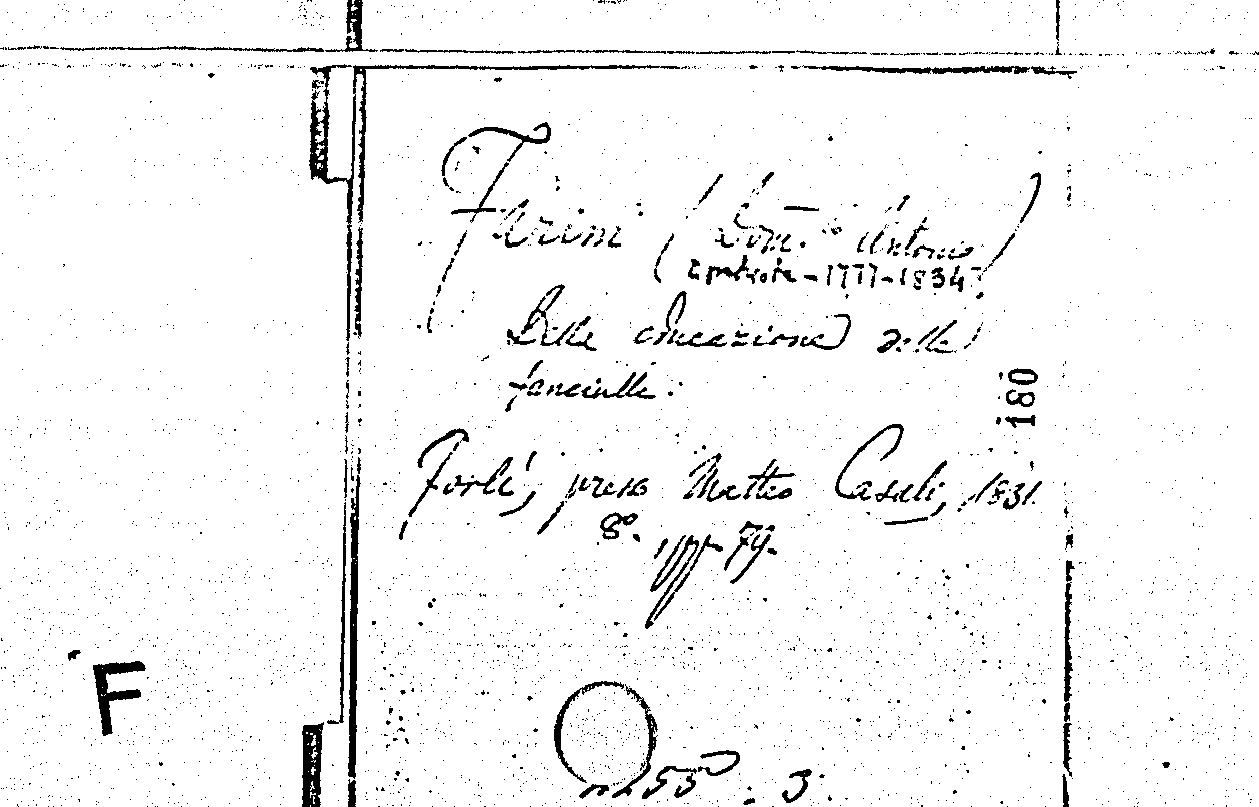 Farini (Dom.co Antonio)
patriota - 1777-1834
Della educazione delle
fanciulle.
Forlì, presso Matteo Casali, 1831.
8°. pp. 79.
180
F
55 . 3.